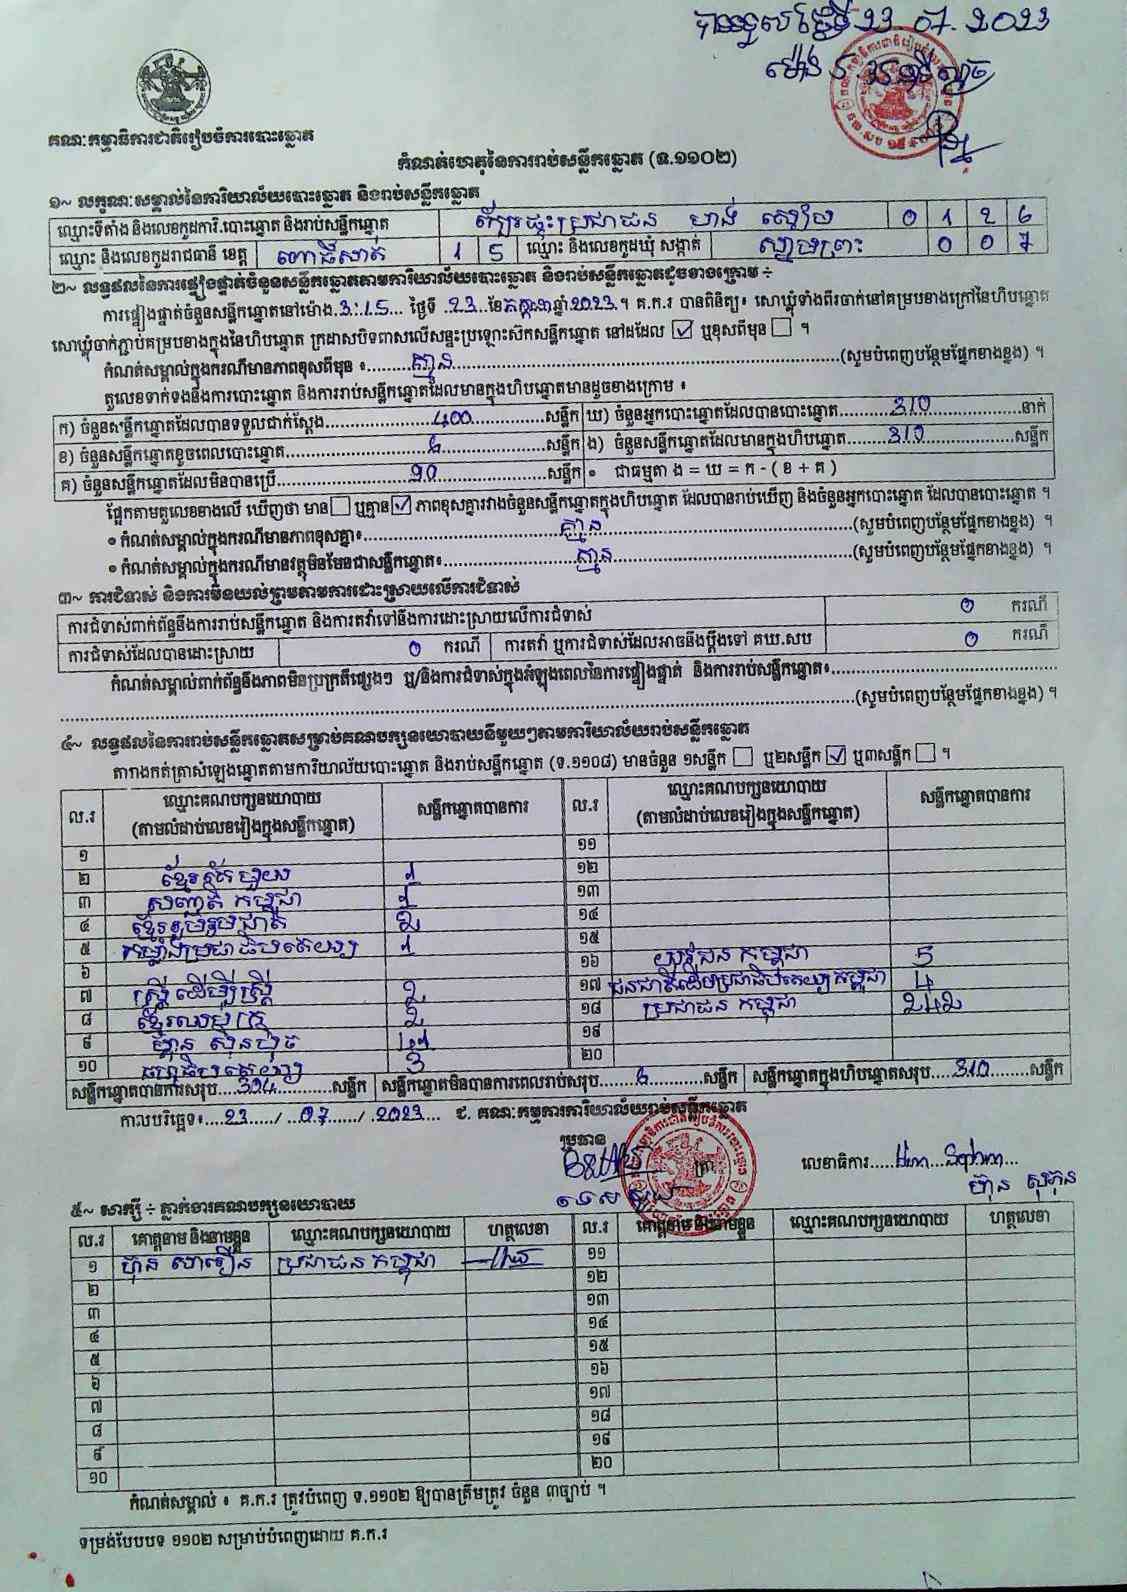 បានទទួលថ្ងៃទី 23. 07. 2023
ម៉ោង
គណៈកម្មាធិការជាតិរៀបចំការបោះឆ្នោត
កំណត់ហេតុនៃការរាប់សន្លឹកឆ្នោត (ទ.១១០២)
១~ លក្ខណៈសម្គាល់នៃការិយាល័យបោះឆ្នោត និងរាប់សន្លឹកឆ្នោត
ឈ្មោះទីតាំង និងលេខកូដការិ.បោះឆ្នោត និងរាប់សន្លឹកឆ្នោត ក្បែរផ្ទះប្រជាជន ហង់ 0 1 2 6
ឈ្មោះ និងលេខកូដរាជធានី ខេត្ត ពោធិ៍សាត់ 1 5 ឈ្មោះ និងលេខកូដឃុំ សង្កាត់ ស្នាមព្រះ 0 0 7
២~ លទ្ធផលនៃការផ្ទៀងផ្ទាត់ចំនួនសន្លឹកឆ្នោតតាមការិយាល័យបោះឆ្នោត និងរាប់សន្លឹកឆ្នោតដូចខាងក្រោម ÷
ការផ្ទៀងផ្ទាត់ចំនួនសន្លឹកឆ្នោតនៅម៉ោង 3:15 ថ្ងៃទី 23 ខែ កក្កដា ឆ្នាំ 2023 ។ គ.ក.រ បានពិនិត្យ៖ សោឃ្លុំទាំងពីរចាក់នៅគម្របខាងក្រៅនៃហិបឆ្នោត
សោឃ្លុំចាក់ភ្ជាប់គម្របខាងក្នុងនៃហិបឆ្នោត ក្រដាសបិទពាសលើសន្ទះប្រឡោះស៊កសន្លឹកឆ្នោត នៅដដែល ☑ ឬខុសពីមុន ☐ ។
កំណត់សម្គាល់ក្នុងករណីមានភាពខុសពីមុន ៖ គ្មាន (សូមបំពេញបន្ថែមផ្នែកខាងខ្នង) ។
តួលេខទាក់ទងនឹងការបោះឆ្នោត និងការរាប់សន្លឹកឆ្នោតដែលមានក្នុងហិបឆ្នោតមានដូចខាងក្រោម ៖
ក) ចំនួនសន្លឹកឆ្នោតដែលបានទទួលជាក់ស្តែង 400 សន្លឹក ឃ) ចំនួនអ្នកបោះឆ្នោតដែលបានបោះឆ្នោត 310 នាក់
ខ) ចំនួនសន្លឹកឆ្នោតខូចពេលបោះឆ្នោត សន្លឹក ង) ចំនួនសន្លឹកឆ្នោតដែលមានក្នុងហិបឆ្នោត 310 សន្លឹក
គ) ចំនួនសន្លឹកឆ្នោតដែលមិនបានប្រើ 90 សន្លឹក ● ជាធម្មតា ង = ឃ = ក - ( ខ + គ )
ផ្អែកតាមតួលេខខាងលើ ឃើញថា មាន ☐ ឬគ្មាន ☑ ភាពខុសគ្នារវាងចំនួនសន្លឹកឆ្នោតក្នុងហិបឆ្នោត ដែលបានរាប់ឃើញ និងចំនួនអ្នកបោះឆ្នោត ដែលបានបោះឆ្នោត ។
● កំណត់សម្គាល់ក្នុងករណីមានភាពខុសគ្នា៖ គ្មាន (សូមបំពេញបន្ថែមផ្នែកខាងខ្នង) ។
● កំណត់សម្គាល់ក្នុងករណីមានវត្ថុមិនមែនជាសន្លឹកឆ្នោត៖ គ្មាន (សូមបំពេញបន្ថែមផ្នែកខាងខ្នង) ។
៣~ ការជំទាស់ និងការមិនយល់ព្រមតាមការដោះស្រាយលើការជំទាស់
ការជំទាស់ពាក់ព័ន្ធនឹងការរាប់សន្លឹកឆ្នោត និងការតវ៉ាទៅនឹងការដោះស្រាយលើការជំទាស់ 0 ករណី
ការជំទាស់ដែលបានដោះស្រាយ 0 ករណី ការតវ៉ា ឬការជំទាស់ដែលអាចនឹងប្តឹងទៅ គឃ.សប 0 ករណី
កំណត់សម្គាល់ពាក់ព័ន្ធនឹងភាពមិនប្រក្រតីផ្សេងៗ ឬ/និងការជំទាស់ក្នុងអំឡុងពេលនៃការផ្ទៀងផ្ទាត់ និងការរាប់សន្លឹកឆ្នោត៖
(សូមបំពេញបន្ថែមផ្នែកខាងខ្នង) ។
៤~ លទ្ធផលនៃការរាប់សន្លឹកឆ្នោតសម្រាប់គណបក្សនយោបាយនីមួយៗតាមការិយាល័យរាប់សន្លឹកឆ្នោត
តារាងកត់ត្រាសំឡេងឆ្នោតតាមការិយាល័យបោះឆ្នោត និងរាប់សន្លឹកឆ្នោត (ទ.១១០៨) មានចំនួន ១សន្លឹក ☐ ឬ២សន្លឹក ☑ ឬ៣សន្លឹក ☐ ។
ល.រ ឈ្មោះគណបក្សនយោបាយ (តាមលំដាប់លេខរៀងក្នុងសន្លឹកឆ្នោត) សន្លឹកឆ្នោតបានការ ល.រ ឈ្មោះគណបក្សនយោបាយ (តាមលំដាប់លេខរៀងក្នុងសន្លឹកឆ្នោត) សន្លឹកឆ្នោតបានការ
១ ១១
២ ខ្មែរតែមួយ 1 ១២
៣ សញ្ជាតិ កម្ពុជា 1 ១៣
៤ ខ្មែររួបរួមជាតិ 2 ១៤
៥ កម្លាំងប្រជាធិបតេយ្យ 1 ១៥
៦ ១៦ យុវជន កម្ពុជា 5
៧ ស្ត្រីដើម្បីស្ត្រី 2 ១៧ ជនជាតិដើមប្រជាធិបតេយ្យកម្ពុជា 4
៨ ខ្មែរឈប់ក្រ 2 ១៨ ប្រជាជន កម្ពុជា 242
៩ ហ៊្វុនស៊ិនប៉ិច ១៩
១០ ធម្មាធិបតេយ្យ 3 ២០
សន្លឹកឆ្នោតបានការសរុប 304 សន្លឹក សន្លឹកឆ្នោតមិនបានការពេលរាប់សរុប 6 សន្លឹក សន្លឹកឆ្នោតក្នុងហិបឆ្នោតសរុប 310 សន្លឹក
កាលបរិច្ឆេទ៖ 23 / 07 / 2023 ជ. គណៈកម្មការការិយាល័យរាប់សន្លឹកឆ្នោត
ប្រធាន
ត្រា លេខាធិការ
៥~ សាក្សី ÷ ភ្នាក់ងារគណបក្សនយោបាយ
ល.រ គោត្តនាម និងនាមខ្លួន ឈ្មោះគណបក្សនយោបាយ ហត្ថលេខា ល.រ គោត្តនាម និងនាមខ្លួន ឈ្មោះគណបក្សនយោបាយ ហត្ថលេខា
១ ប្រជាជន កម្ពុជា ១១
២ ១២
៣ ១៣
៤ ១៤
៥ ១៥
៦ ១៦
៧ ១៧
៨ ១៨
៩ ១៩
១០ ២០
កំណត់សម្គាល់ ៖ គ.ក.រ ត្រូវបំពេញ ទ.១១០២ ឱ្យបានត្រឹមត្រូវ ចំនួន ៣ច្បាប់ ។
ទម្រង់បែបបទ ១១០២ សម្រាប់បំពេញដោយ គ.ក.រ